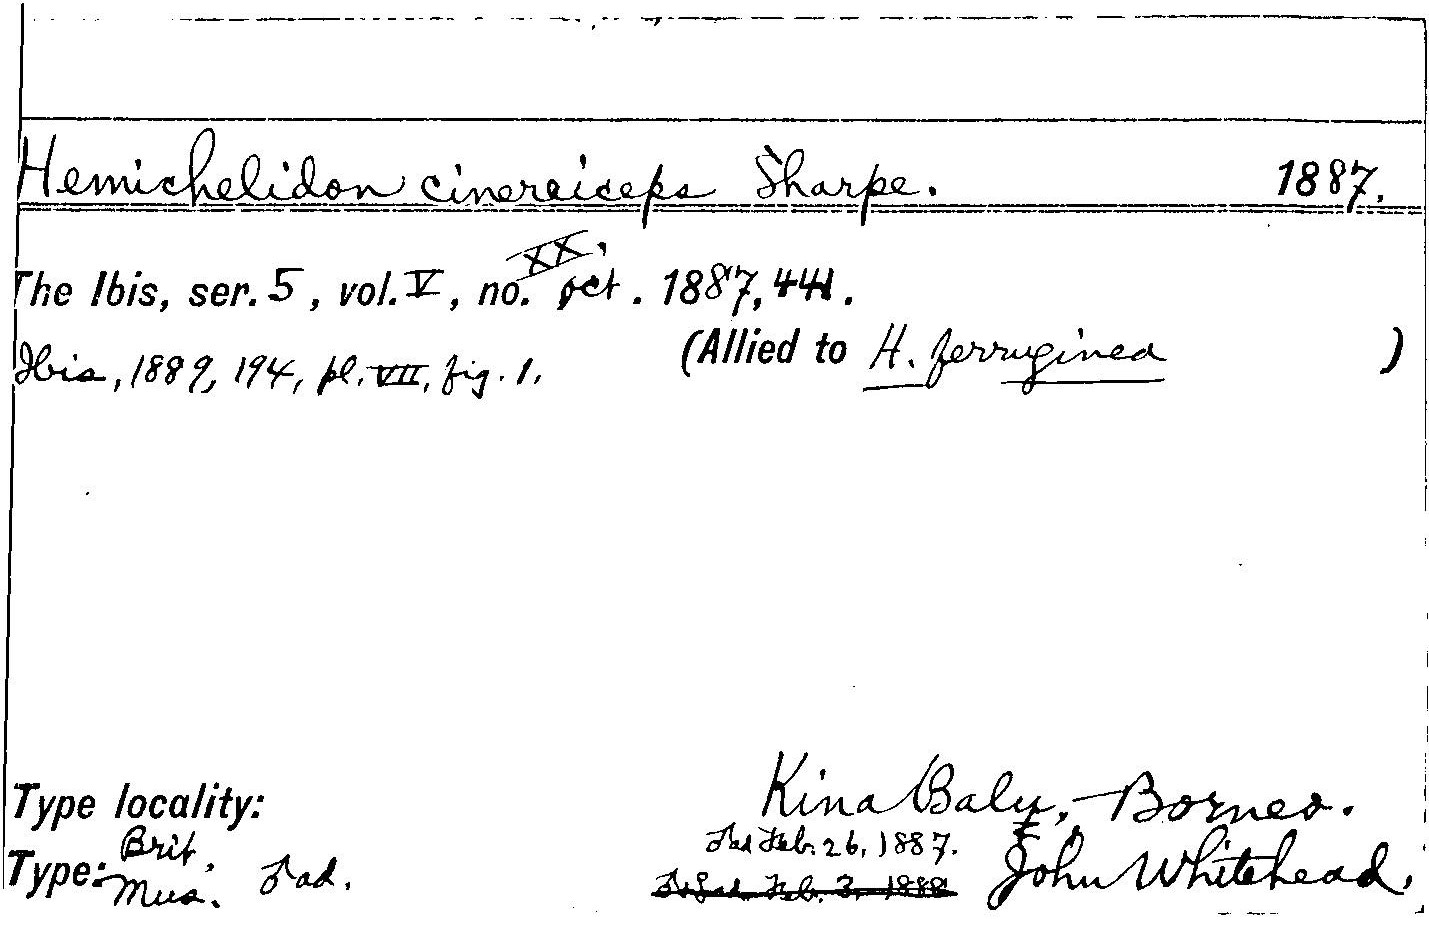 Hemichelidon cinereiceps Sharpe. 1887.
XX,
The Ibis, ser. 5, vol. V, no. Oct. 1887, 441.
(Allied to H. ferruginea )
Ibis, 1889, 194, pl. VII, fig. 1.
Type locality: Kina Balu, Borneo.
Feb. 26, 1887.
Type: Brit. Mus. ad. Feb. 3, 1888 John Whitehead.